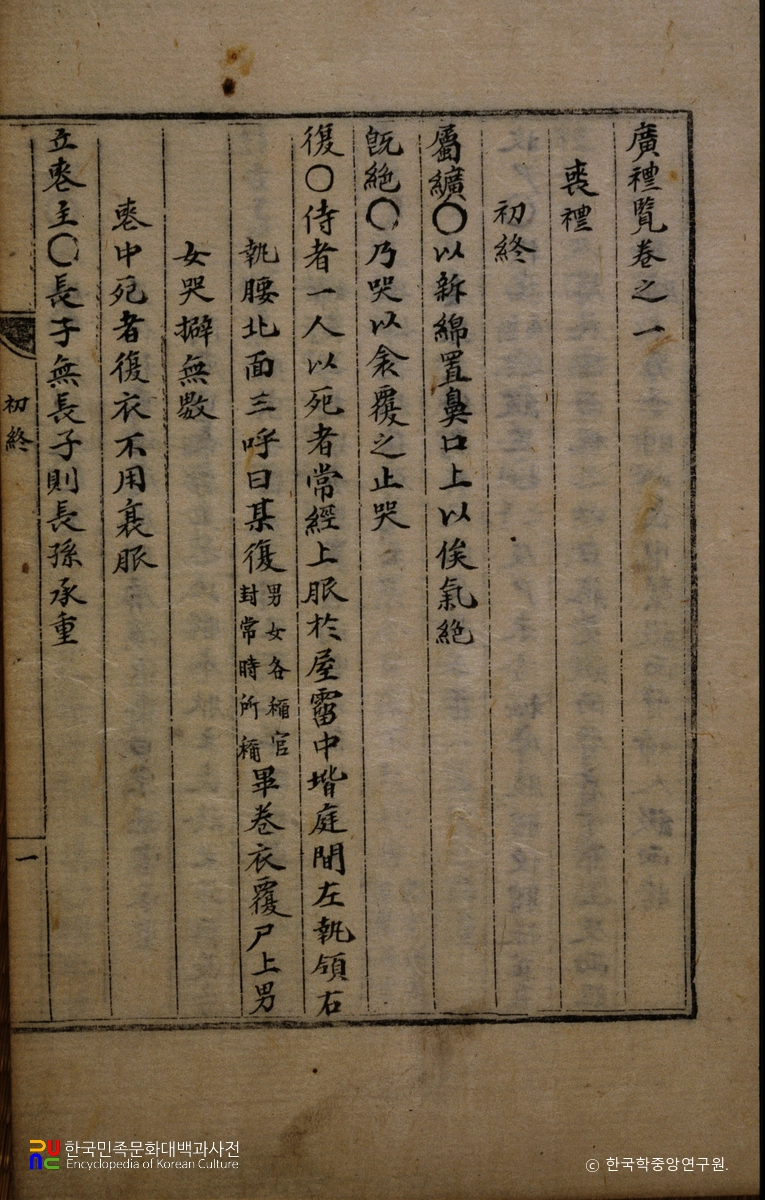 廣禮覽卷之一
喪禮
初終
屬纊○以新綿置鼻口上以俟氣絶
旣絶○乃哭以衾覆之止哭
復○侍者一人以死者常經上服於屋霤中堦庭間左執領右
執腰北面三呼曰某復男女各稱官封常時所稱畢卷衣覆尸上男
女哭擗無數
喪中死者復衣不用衰服
立喪主○長子無長子則長孫承重
初終
一
한국민족문화대백과사전
Encyclopedia of Korean Culture
© 한국학중앙연구원.